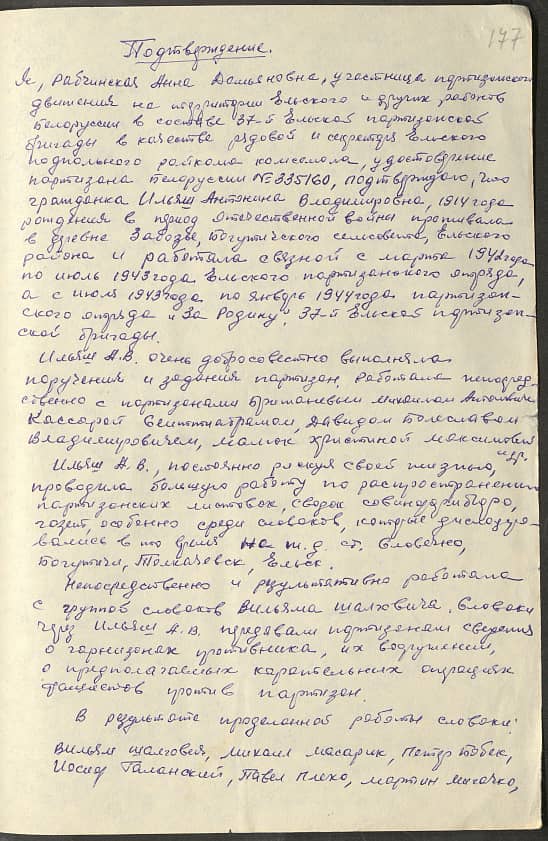 177
Подтверждение.
Я, Рабчинская Анна Демьяновна, участница партизанского
движения на территории Ельского и других районов
Белоруссии в составе 37-й Ельской партизанской
бригады в качестве рядовой и секретаря Ельского
подпольного райкома комсомола, удостоверение
партизана Белоруссии № 335160, подтверждаю, что
гражданка Ильяш Антонина Владимировна, 1914 года
рождения в период Отечественной войны проживала
в деревне Забозье, Богутичского сельсовета, Ельского
района и работала связной с марта 1942 года
по июль 1943 года Ельского партизанского отряда,
а с июля 1943 года по январь 1944 года партизан-
ского отряда "За Родину", 37-й Ельской партизан-
ской бригады.
Ильяш А.В. очень добросовестно выполняла
поручения и задания партизан. Работала непосред-
ственно с партизанами Британовым Михаилом Антоновичем
Кассарой Давидом Болеславом
Владимировичем, Малюк Христиной Максимовной
и др.
Ильяш А.В., постоянно рискуя своей жизнью,
проводила большую работу по распространению
партизанских листовок, сводок совинформбюро,
газет, особенно среди словаков, которые дислоциро-
вались в то время на ж.д. ст. Словечно,
Богутичи, Ельск.
Непосредственно и результативно работала
с группой словаков Вильяма Шалховича. Словаки
через Ильяш А.В. передавали партизанам сведения
о гарнизонах противника, их вооружении,
о предполагаемых карательных операциях
фашистов против партизан.
В результате проделанной работы словаки:
Вильям Шалгович, Михаил Масарик, Петер Бобек,
Иосиф Галанский, Павел Плехо, Мартин Мигачко,